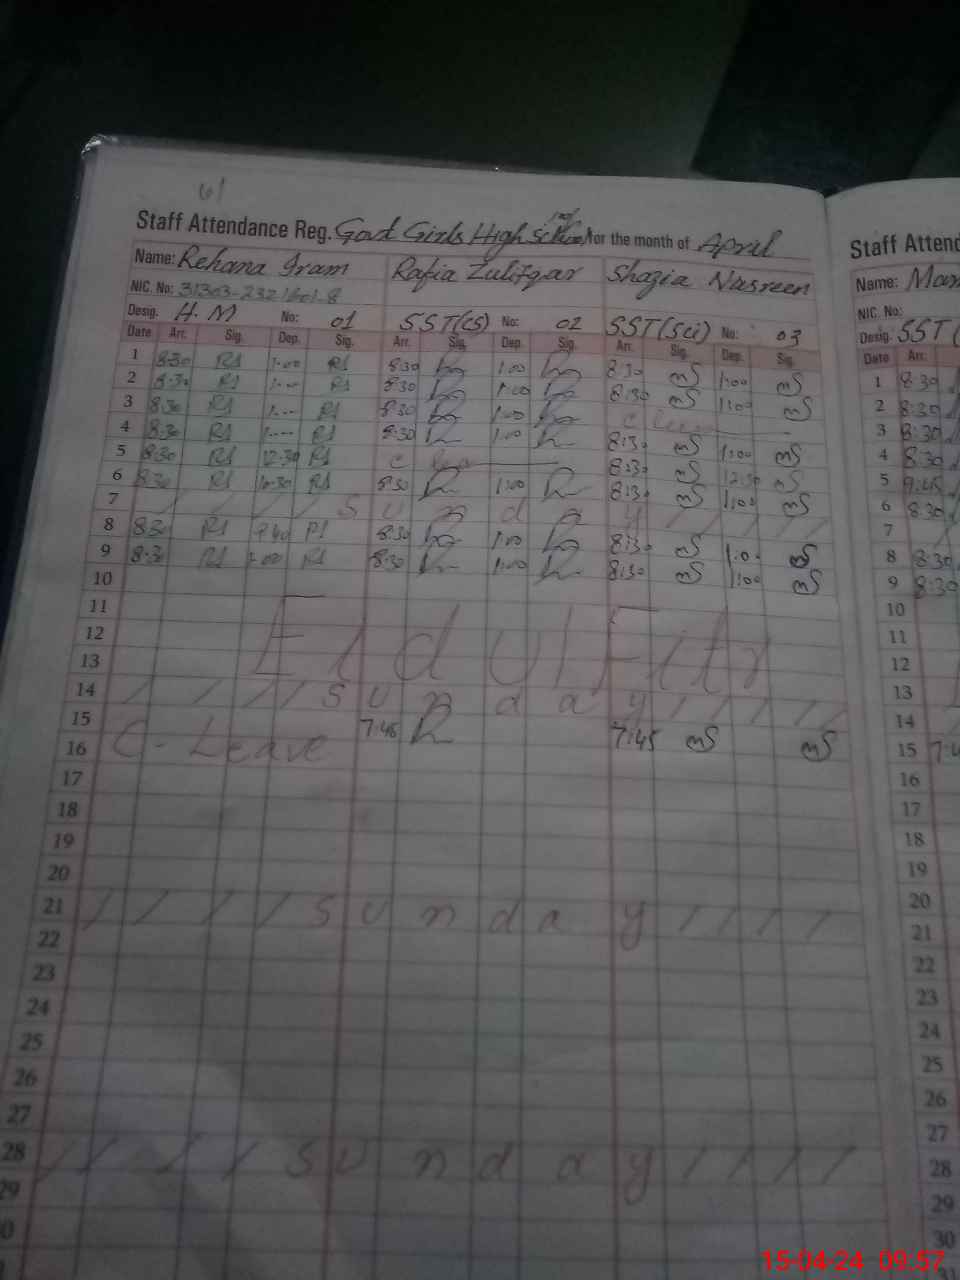 61
Staff Attendance Reg. Govt Girls High School for the month of April
Name: Rehana Iram Rafia Zulifqar Shazia Nasreen
NIC. No: 31303-2321601-8
Desig. H.M No: 01 SST(CS) No: 02 SST(Sci) No: 03
Date Arr. Sig. Dep. Sig. Arr. Sig. Dep. Sig. Arr. Sig. Dep. Sig.
1 8:30 RI 1:00 RI 8:30 1:00 8:30 mS 1:00 mS
2 8:30 RI 1:-- RI 8:30 1:00 8:30 mS 1:00 mS
3 8:30 RI 1:-- RI 8:30 1:00 C
4 8:30 RI 1:-- RI 8:30 1:00 8:30 mS 1:00 mS
5 8:30 RI 12:30 RI C 8:30 mS 12:30 mS
6 8:30 RI RI 8:30 1:00 8:30 mS 1:00 mS
7 / / / / S u n d a y / / / /
8 8:30 RI RI 8:30 1:00 8:30 mS 1:00 mS
9 8:30 RI RI 8:30 1:00 8:30 mS 1:00 mS
10
11
12 Eid Ul Fitr
13
14 / / / / S u n d a y / / / / /
15 C - Leave 7:45 7:45 mS mS
16
17
18
19
20
21 / / / / S u n d a y / / / /
22
23
24
25
26
27
28 / / / / S u n d a y / / / /
29
Staff Attend
Name:
NIC. No:
Desig. SST (
Date Arr.
1 8:30
2 8:30
3 8:30
4 8:30
5 9:45
6 8:30
7
8 8:30
9 8:30
10
11
12
13
14
15
16
17
18
19
20
21
22
23
24
25
26
27
28
29
30
31
15-04-24 09:57